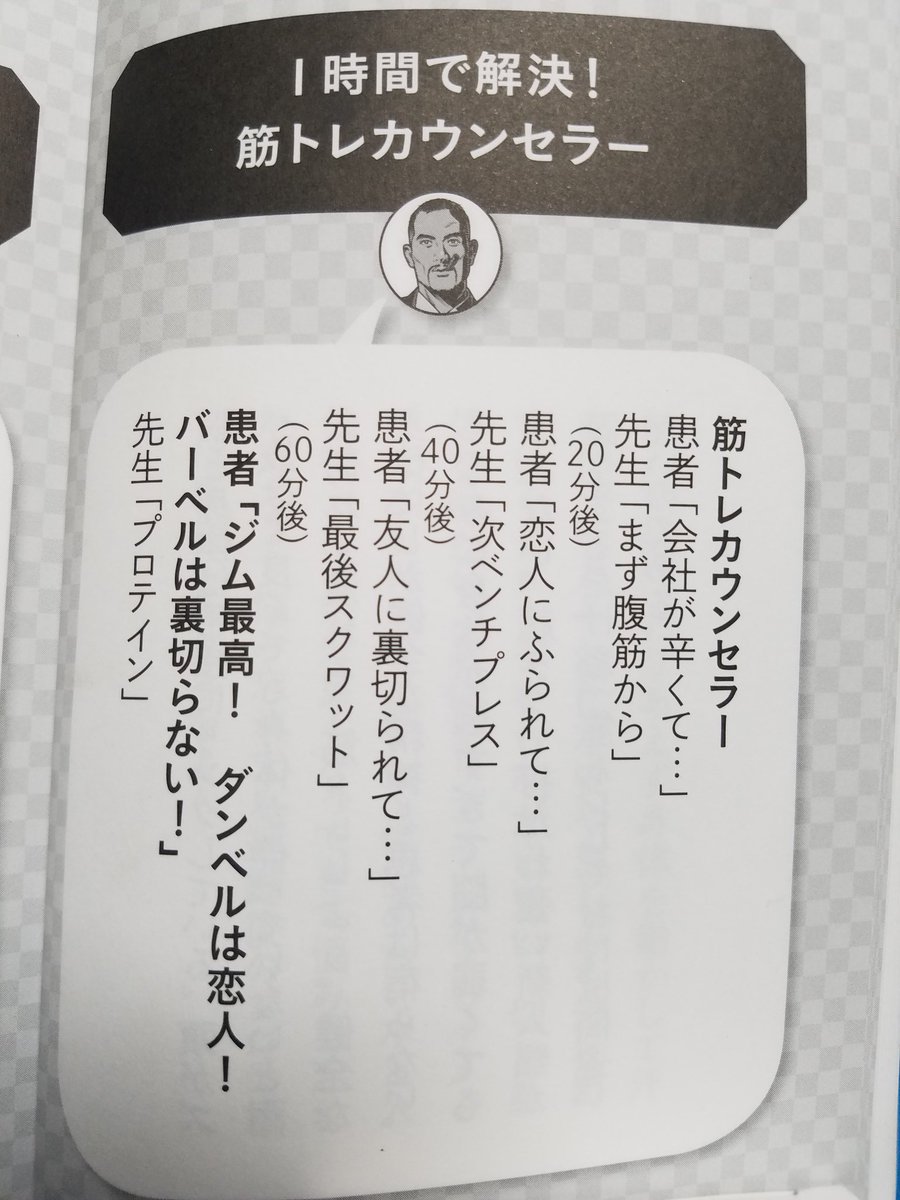 1時間で解決!
筋トレカウンセラー
筋トレカウンセラー
患者「会社が辛くて…」
先生「まず腹筋から」
(20分後)
患者「恋人にふられて…」
先生「次ベンチプレス」
(40分後)
患者「友人に裏切られて…」
先生「最後スクワット」
(60分後)
患者「ジム最高! ダンベルは恋人!
バーベルは裏切らない!」
先生「プロテイン」